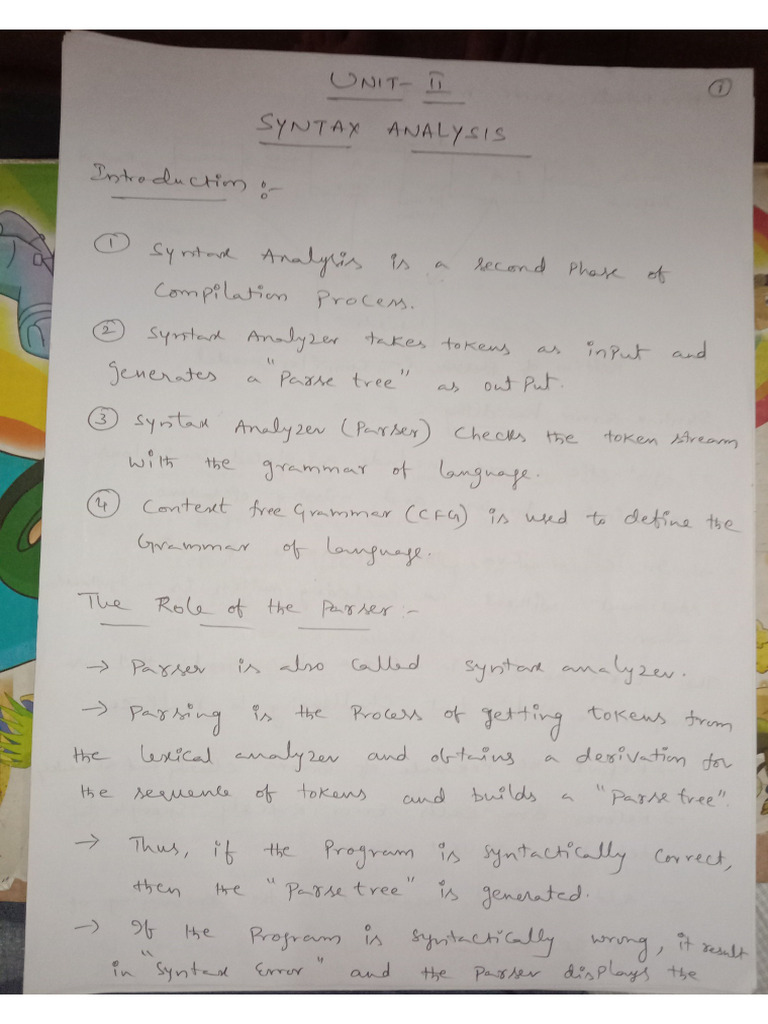 UNIT- II
①
SYNTAX ANALYSIS
Introduction :-
① Syntax Analysis is a second phase of
Compilation Process.
② Syntax Analyzer takes tokens as input and
generates a "Parse tree" as output.
③ Syntax Analyzer (Parser) checks the token stream
with the grammar of language.
④ Context free Grammar (CFG) is used to define the
Grammar of language.
The Role of the Parser :-
→ Parser is also called syntax analyzer.
→ Parsing is the Process of getting tokens from
the lexical analyzer and obtains a derivation for
the sequence of tokens and builds a "Parse tree".
→ Thus, if the Program is syntactically correct,
then the "Parse tree" is generated.
→ If the Program is syntactically wrong, it result
in "Syntax Error" and the parser displays the